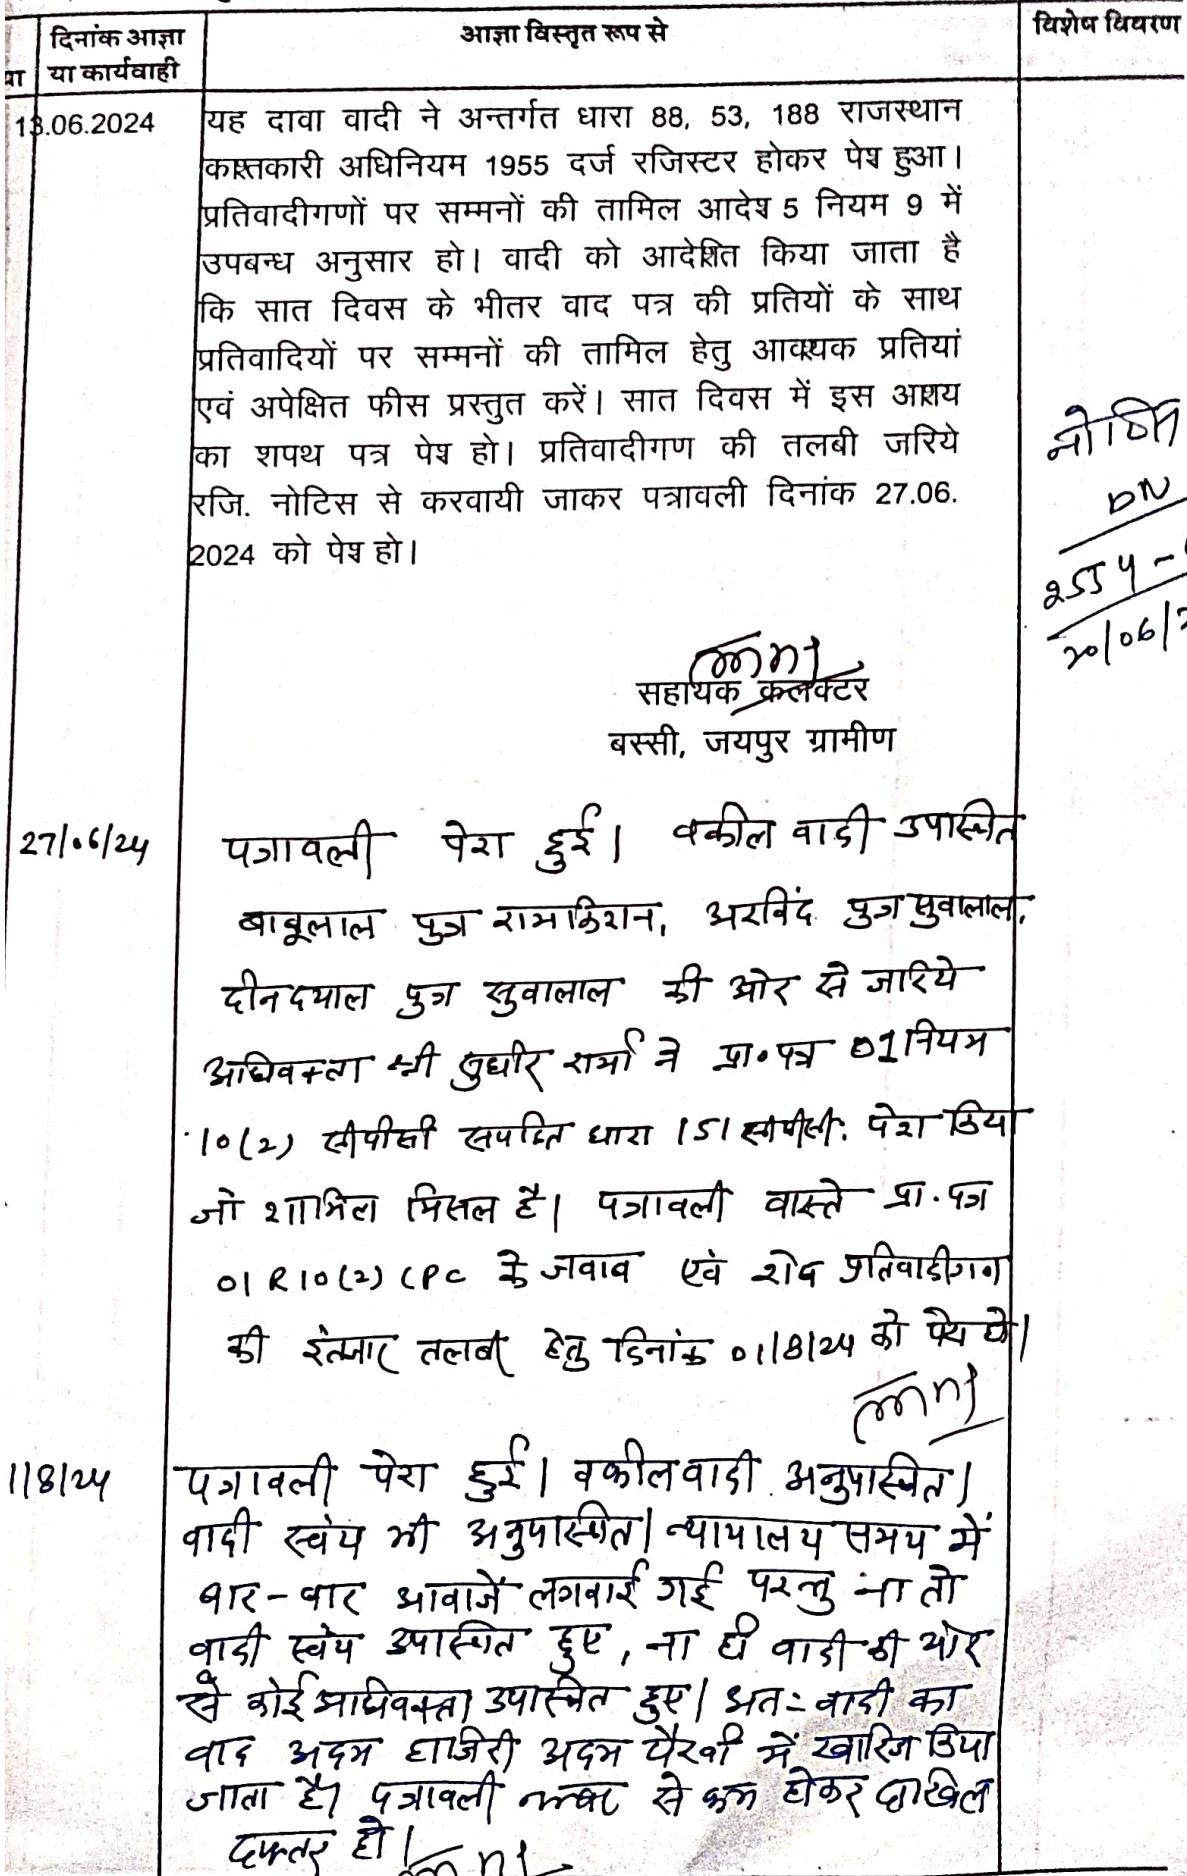 दिनांक आज्ञा
या कार्यवाही
आज्ञा विस्तृत रूप से
विशेष विवरण
या
13.06.2024
यह दावा वादी ने अन्तर्गत धारा 88, 53, 188 राजस्थान
काश्तकारी अधिनियम 1955 दर्ज रजिस्टर होकर पेश हुआ।
प्रतिवादीगणों पर सम्मनों की तामिल आदेश 5 नियम 9 में
उपबन्ध अनुसार हो। वादी को आदेशित किया जाता है
कि सात दिवस के भीतर वाद पत्र की प्रतियों के साथ
प्रतिवादियों पर सम्मनों की तामिल हेतु आवश्यक प्रतियां
एवं अपेक्षित फीस प्रस्तुत करें। सात दिवस में इस आशय
का शपथ पत्र पेश हो। प्रतिवादीगण की तलबी जरिये
रजि. नोटिस से करवायी जाकर पत्रावली दिनांक 27.06.
2024 को पेश हो।
DN
2554-
20/06/2
सहायक कलक्टर
बस्सी, जयपुर ग्रामीण
27/06/24
पत्रावली पेश हुई। वकील वादी उपस्थित
बाबूलाल पुत्र रामकिशन, अरविंद पुत्र सुवालाल,
दीनदयाल पुत्र सुवालाल की ओर से जरिये
अधिवक्ता श्री सुधीर शर्मा ने प्रा.पत्र 01 नियम
10(2) सीपीसी सपठित धारा 151 सीपीसी. पेश किया
जो शामिल मिसल है। पत्रावली वास्ते प्रा.पत्र
01 R 10(2) CPC के जवाब एवं शेष प्रतिवादीगण
की इंतजार तलबी हेतु दिनांक 01/8/24 को पेश हो।
1/8/24
पत्रावली पेश हुई। वकील वादी अनुपस्थित।
वादी स्वंय भी अनुपस्थित। न्यायालय समय में
बार-बार आवाजें लगवाई गई परन्तु ना तो
वादी स्वंय उपस्थित हुए, ना ही वादी की ओर
से कोई अधिवक्ता उपस्थित हुए। अतः वादी का
वाद अदम हाजिरी अदम पैरवी में खारिज किया
जाता है। पत्रावली नम्बर से कम होकर दाखिल
दफ्तर हो।